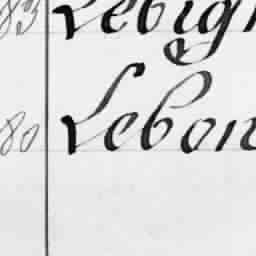 83 Lebig
80 Lebon